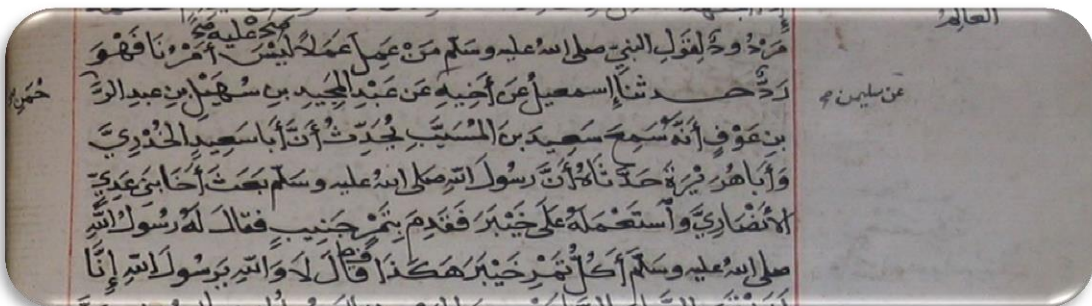 العالم
عليه صح
مَرْدُودٌ لِقَوْلِ النبيّ صلى الله عليه وسلم مَنْ عَمِلَ عَمَلًا لَيْسَ أَمْرُنَا فَهْوَ
رَدٌّ حدثنا إسمعيلُ عَنْ أَخِيهِ عَن عَبْدِ المجِيدِ بنِ سُهَيْلِ بنِ عبدِ الرَّ حْمنِ
عن سليمن صح
بنِ عَوْفٍ أَنَّهُ سَمِعَ سَعِيدَ بنَ المُسَيَّبِ يُحَدِّثُ أَنَّ أَبا سَعِيدٍ الخُدْرِيَّ
وَأَبَا هُرَيْرَةَ حَدَّثَاهُ أَنَّ رسولَ اللهِ صلى الله عليه وسلم بَعَثَ أَخَا بَنِي عَدِيٍّ
الانْصَارِيَّ واسْتَعْمَلَهُ عَلَى خَيْبَرَ فَقَدِمَ بِتَمْرٍ جَنِيبٍ فقالَ لَهُ رَسُولُ اللهِ
صلى الله عليه وسلم أَكُلُّ تَمْرِ خَيْبَرَ هَكَذَا قَالَ لَا وَاللهِ يَرسُولَ اللهِ إِنَّا